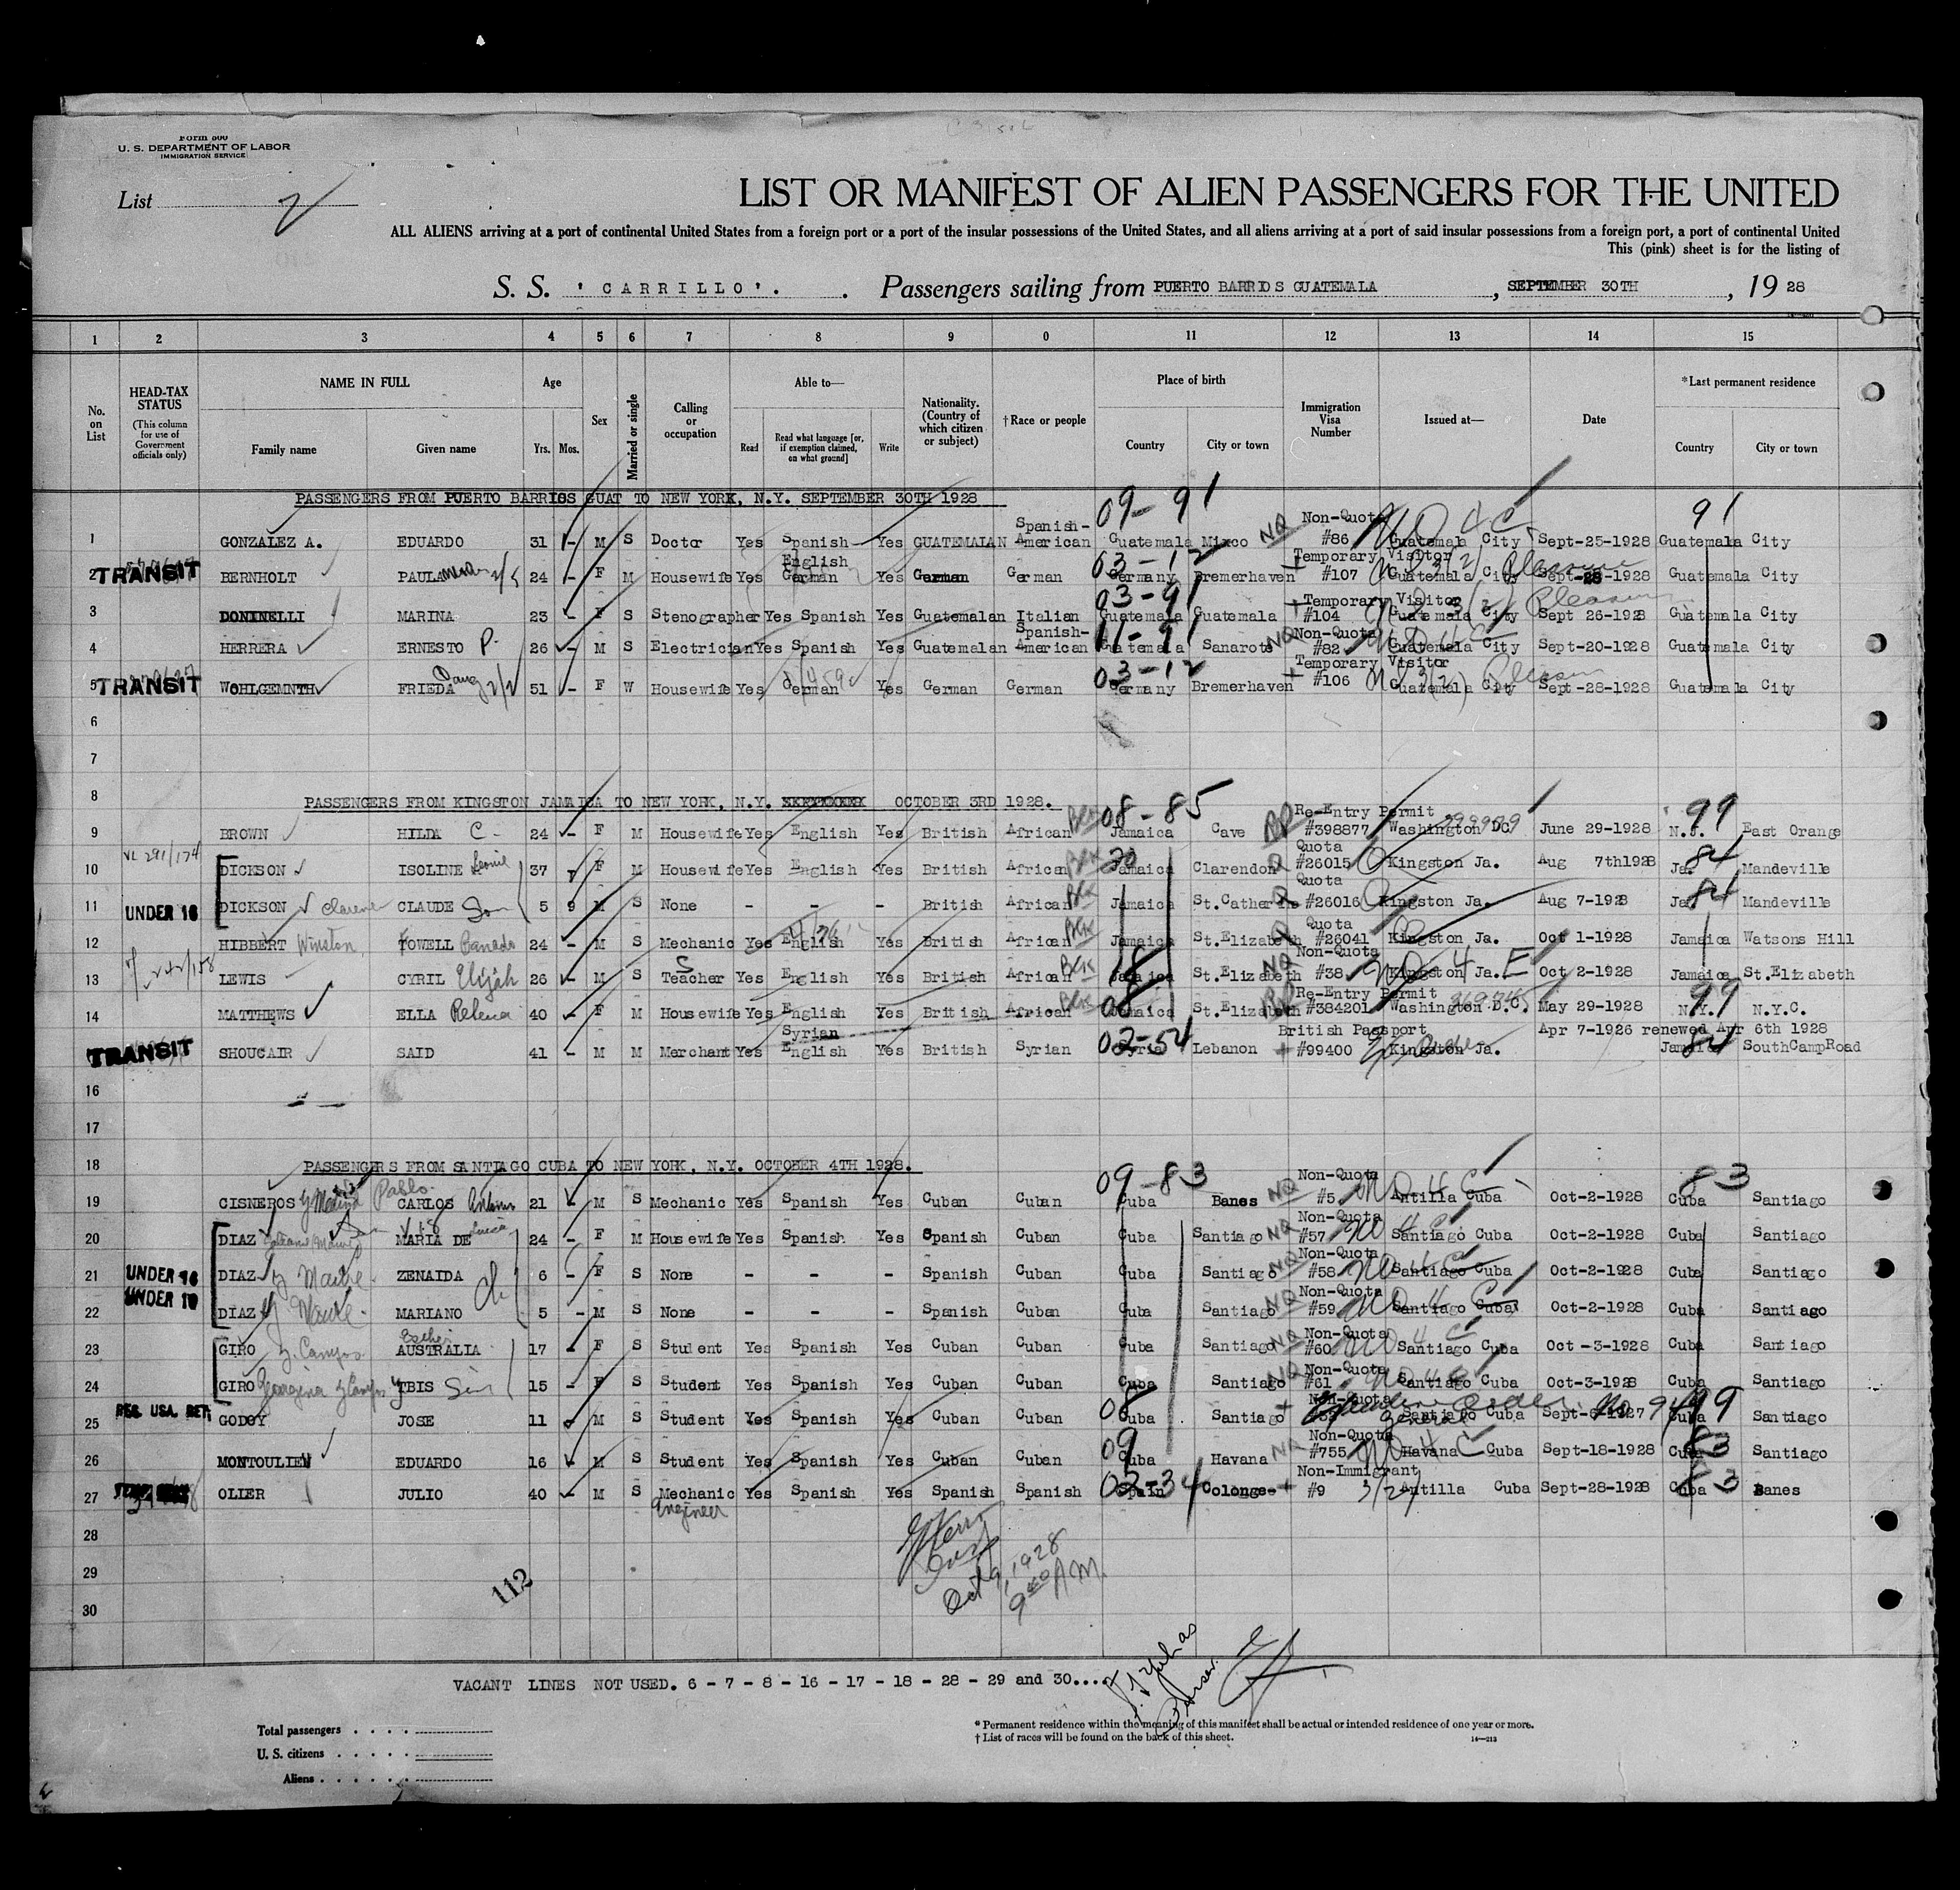 Form 500
U. S. DEPARTMENT OF LABOR
IMMIGRATION SERVICE
List 2
LIST OR MANIFEST OF ALIEN PASSENGERS FOR THE UNITED
ALL ALIENS arriving at a port of continental United States from a foreign port or a port of the insular possessions of the United States, and all aliens arriving at a port of said insular possessions from a foreign port, a port of continental United
This (pink) sheet is for the listing of
S. S. 'CARRILLO'. Passengers sailing from PUERTO BARRIOS GUATEMALA, SEPTEMBER 30TH, 1928
1 2 3 4 5 6 7 8 9 0 11 12 13 14 15
No. on List HEAD-TAX STATUS (This column for use of Government officials only) NAME IN FULL Family name Given name Age Yrs. Mos. Sex Married or single Calling or occupation Able to— Read Read what language [or, if exemption claimed, on what ground] Write Nationality. (Country of which citizen or subject) †Race or people Place of birth Country City or town Immigration Visa Number Issued at— Date *Last permanent residence Country City or town
PASSENGERS FROM PUERTO BARRIOS GUAT TO NEW YORK, N.Y. SEPTEMBER 30TH 1928 09-91 91
1 GONZALEZ A. EDUARDO 31 - M S Doctor Yes Spanish Yes GUATEMALAN Spanish-American Guatemala Mixco NQ Non-Quota #86 NO 4 C Guatemala City Sept-25-1928 Guatemala City
2 TRANSIT BERNHOLT PAULA 24 - F M Housewife Yes English German Yes German German 03-12 Germany Bremerhaven Temporary Visitor #107 3(2) Guatemala City Pleasure Sept-28-1928 Guatemala City
3 DONINELLI MARINA 23 - F S Stenographer Yes Spanish Yes Guatemalan Italian 03-91 Guatemala Guatemala Temporary Visitor #104 3(2) Guatemala City Pleasure Sept 26-1928 Guatemala City
4 HERRERA ERNESTO P. 26 - M S Electrician Yes Spanish Yes Guatemalan Spanish-American 11-91 Guatemala Sanarote NQ Non-Quota #82 NO 4 C Guatemala City Sept-20-1928 Guatemala City
5 TRANSIT WOHLGEMNTH FRIEDA 51 - F W Housewife Yes German Yes German German 03-12 Germany Bremerhaven Temporary Visitor #106 3(2) Guatemala City Pleasure Sept-28-1928 Guatemala City
6
7
8 PASSENGERS FROM KINGSTON JAMAICA TO NEW YORK, N.Y. OCTOBER 3RD 1928. 08-85
9 BROWN HILDA C- 24 - F M Housewife Yes English Yes British African Blk Jamaica Cave RP Re-Entry Permit #398877 Washington DC June 29-1928 99 N.J. East Orange
10 DICKSON ISOLINE 37 7 F M Housewife Yes English Yes British African Blk Jamaica Clarendon Q Quota #26015 Kingston Ja. Aug 7th1928 84 Ja. Mandeville
11 UNDER 16 DICKSON CLAUDE Son 5 9 M S None - - - British African Blk Jamaica St.Catherine Q Quota #26016 Kingston Ja. Aug 7-1928 84 Ja. Mandeville
12 HIBBERT Winston 24 - M S Mechanic Yes English Yes British African Blk Jamaica St.Elizabeth Q Quota #26041 Kingston Ja. Oct 1-1928 Jamaica Watsons Hill
13 LEWIS CYRIL Elijah 26 - M S Teacher Yes English Yes British African Blk Jamaica St.Elizabeth NQ Non-Quota #38 NO 4 E Kingston Ja. Oct 2-1928 Jamaica St.Elizabeth
14 MATTHEWS ELLA Rebena 40 - F M Housewife Yes English Yes British African Blk 08 Jamaica St.Elizabeth RP Re-Entry Permit #384201 Washington D.C. May 29-1928 99 N.Y. N.Y.C.
TRANSIT SHOUCAIR SAID 41 - M M Merchant Yes Syrian English Yes British Syrian 02-54 Syria Lebanon British Passport #99400 Kingston Ja. Apr 7-1926 renewed Apr 6th 1928 84 Jamaica SouthCampRoad
16
17
18 PASSENGERS FROM SANTIAGO CUBA TO NEW YORK, N.Y. OCTOBER 4TH 1928. 09-83 83
19 CISNEROS y Medina Pablo CARLOS Antonio 21 - M S Mechanic Yes Spanish Yes Cuban Cuban Cuba Banes NQ Non-Quota #5 NO 4 C Antilla Cuba Oct-2-1928 Cuba Santiago
20 DIAZ MARIA DE 24 - F M Housewife Yes Spanish Yes Spanish Cuban Cuba Santiago NQ Non-Quota #57 NO 4 C Santiago Cuba Oct-2-1928 Cuba Santiago
21 UNDER 16 DIAZ y ZENAIDA ch 6 - F S None - - - Spanish Cuban Cuba Santiago NQ Non-Quota #58 NO 4 C Santiago Cuba Oct-2-1928 Cuba Santiago
22 UNDER 16 DIAZ y MARIANO 5 - M S None - - - Spanish Cuban Cuba Santiago NQ Non-Quota #59 NO 4 C Santiago Cuba Oct-2-1928 Cuba Santiago
23 GIRO y. Campos Esther AUSTRALIA 17 - F S Student Yes Spanish Yes Cuban Cuban Cuba Santiago NQ Non-Quota #60 NO 4 C Santiago Cuba Oct-3-1928 Cuba Santiago
24 GIRO Georgina y Campos YBIS Sis 15 - F S Student Yes Spanish Yes Cuban Cuban Cuba Santiago NQ Non-Quota #61 NO 4 C Santiago Cuba Oct-3-1928 Cuba Santiago
25 RES. USA. RET. GODOY JOSE 11 M S Student Yes Spanish Yes Cuban Cuban 08 Cuba Santiago Non-Quota General Order Santiago Cuba Sept-6-1927 99 Cuba Santiago
26 MONTOULIEU EDUARDO 16 - M S Student Yes Spanish Yes Cuban Cuban 09 Cuba Havana NQ Non-Quota #755 NO 4 C Havana Cuba Sept-18-1928 83 Cuba Santiago
27 OLIER JULIO 40 - M S Mechanic Engineer Yes Spanish Yes Spanish Spanish 02-34 Spain Colonge Non-Immigrant #9 3/2 Antilla Cuba Sept-28-1928 83 Cuba Banes
28
29
30
112
Oct 9, 1928
9 00 A M.
VACANT LINES NOT USED. 6 - 7 - 8 - 16 - 17 - 18 - 28 - 29 and 30....
Purser.
Total passengers
U. S. citizens
Aliens
* Permanent residence within the meaning of this manifest shall be actual or intended residence of one year or more.
† List of races will be found on the back of this sheet.
14—213